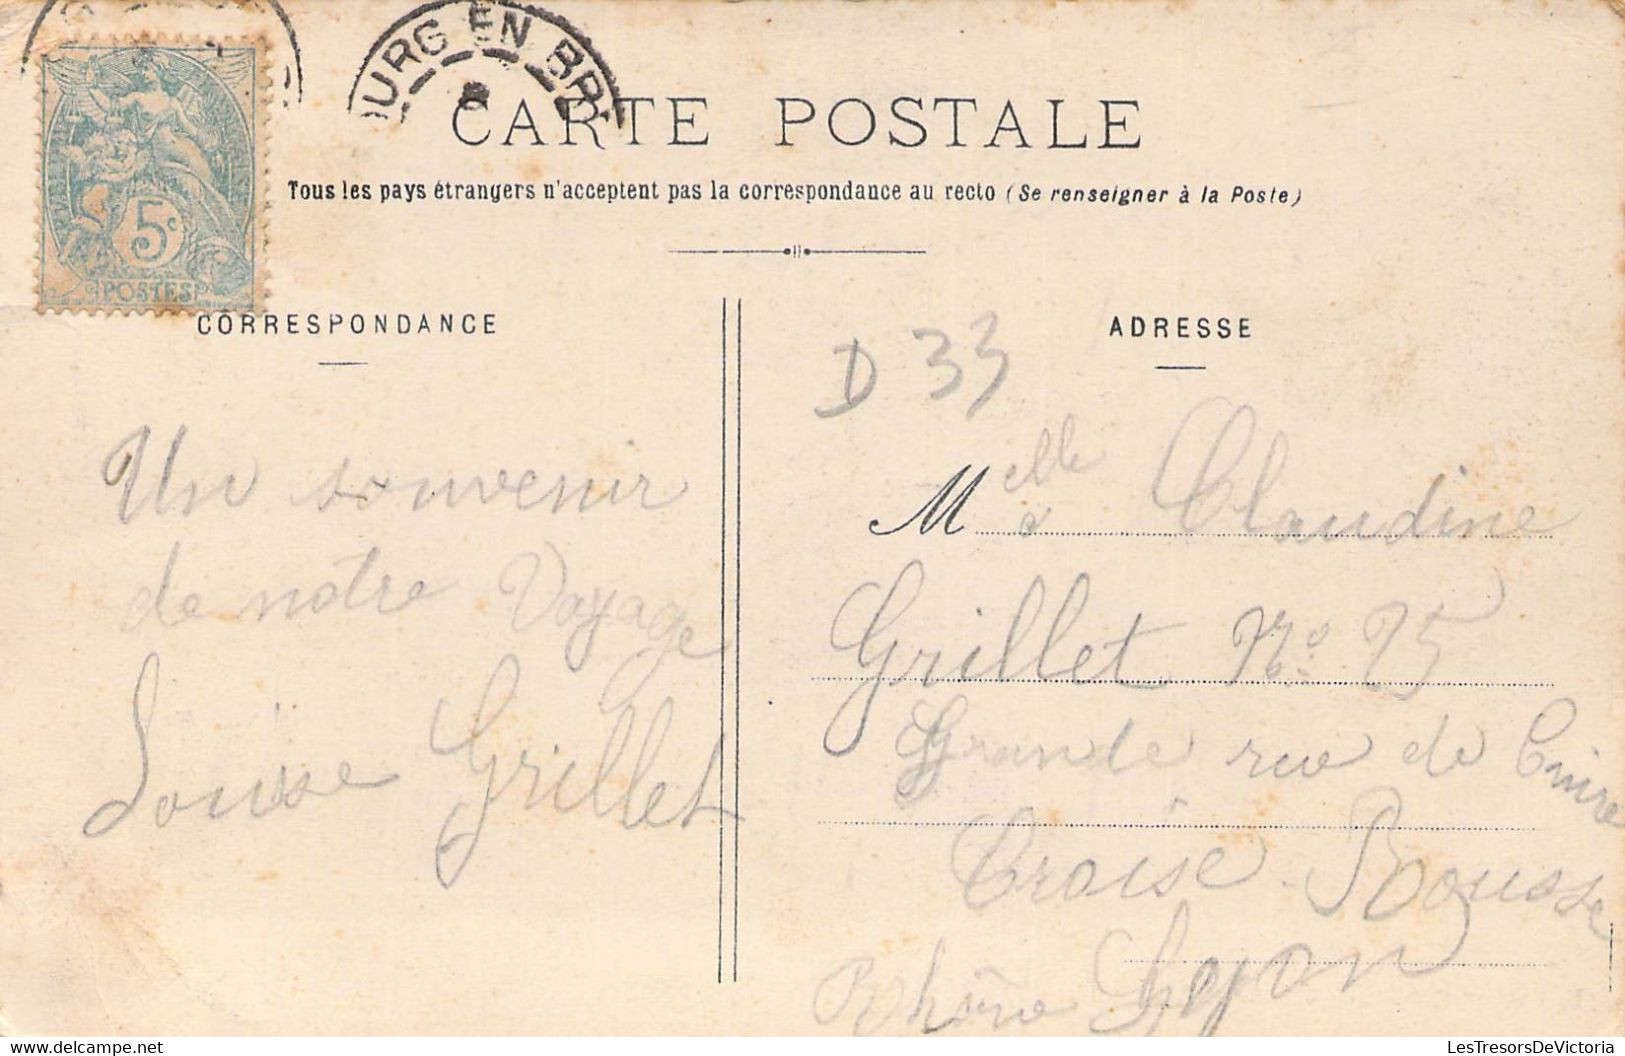 BOURG EN BR
CARTE POSTALE
Tous les pays étrangers n'acceptent pas la correspondance au recto (Se renseigner à la Poste)
5c
POSTES
CORRESPONDANCE
ADRESSE
D 33
Un souvenir
de notre Voyage
Louise Grillet
Melle Claudine
Grillet No. 25
Grande rue de Cuire
Croise Rousse
Rhône Lyon
LesTresorsDeVictoria